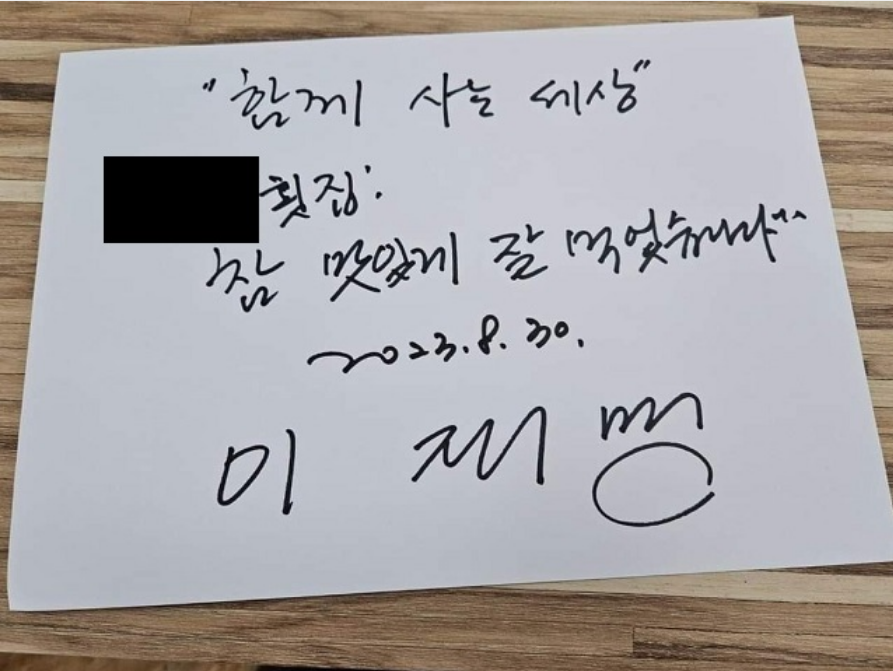 "함께 사는 세상"
횟집:
참 맛있게 잘 먹었습니다^^
2023.8.30.
이 재명